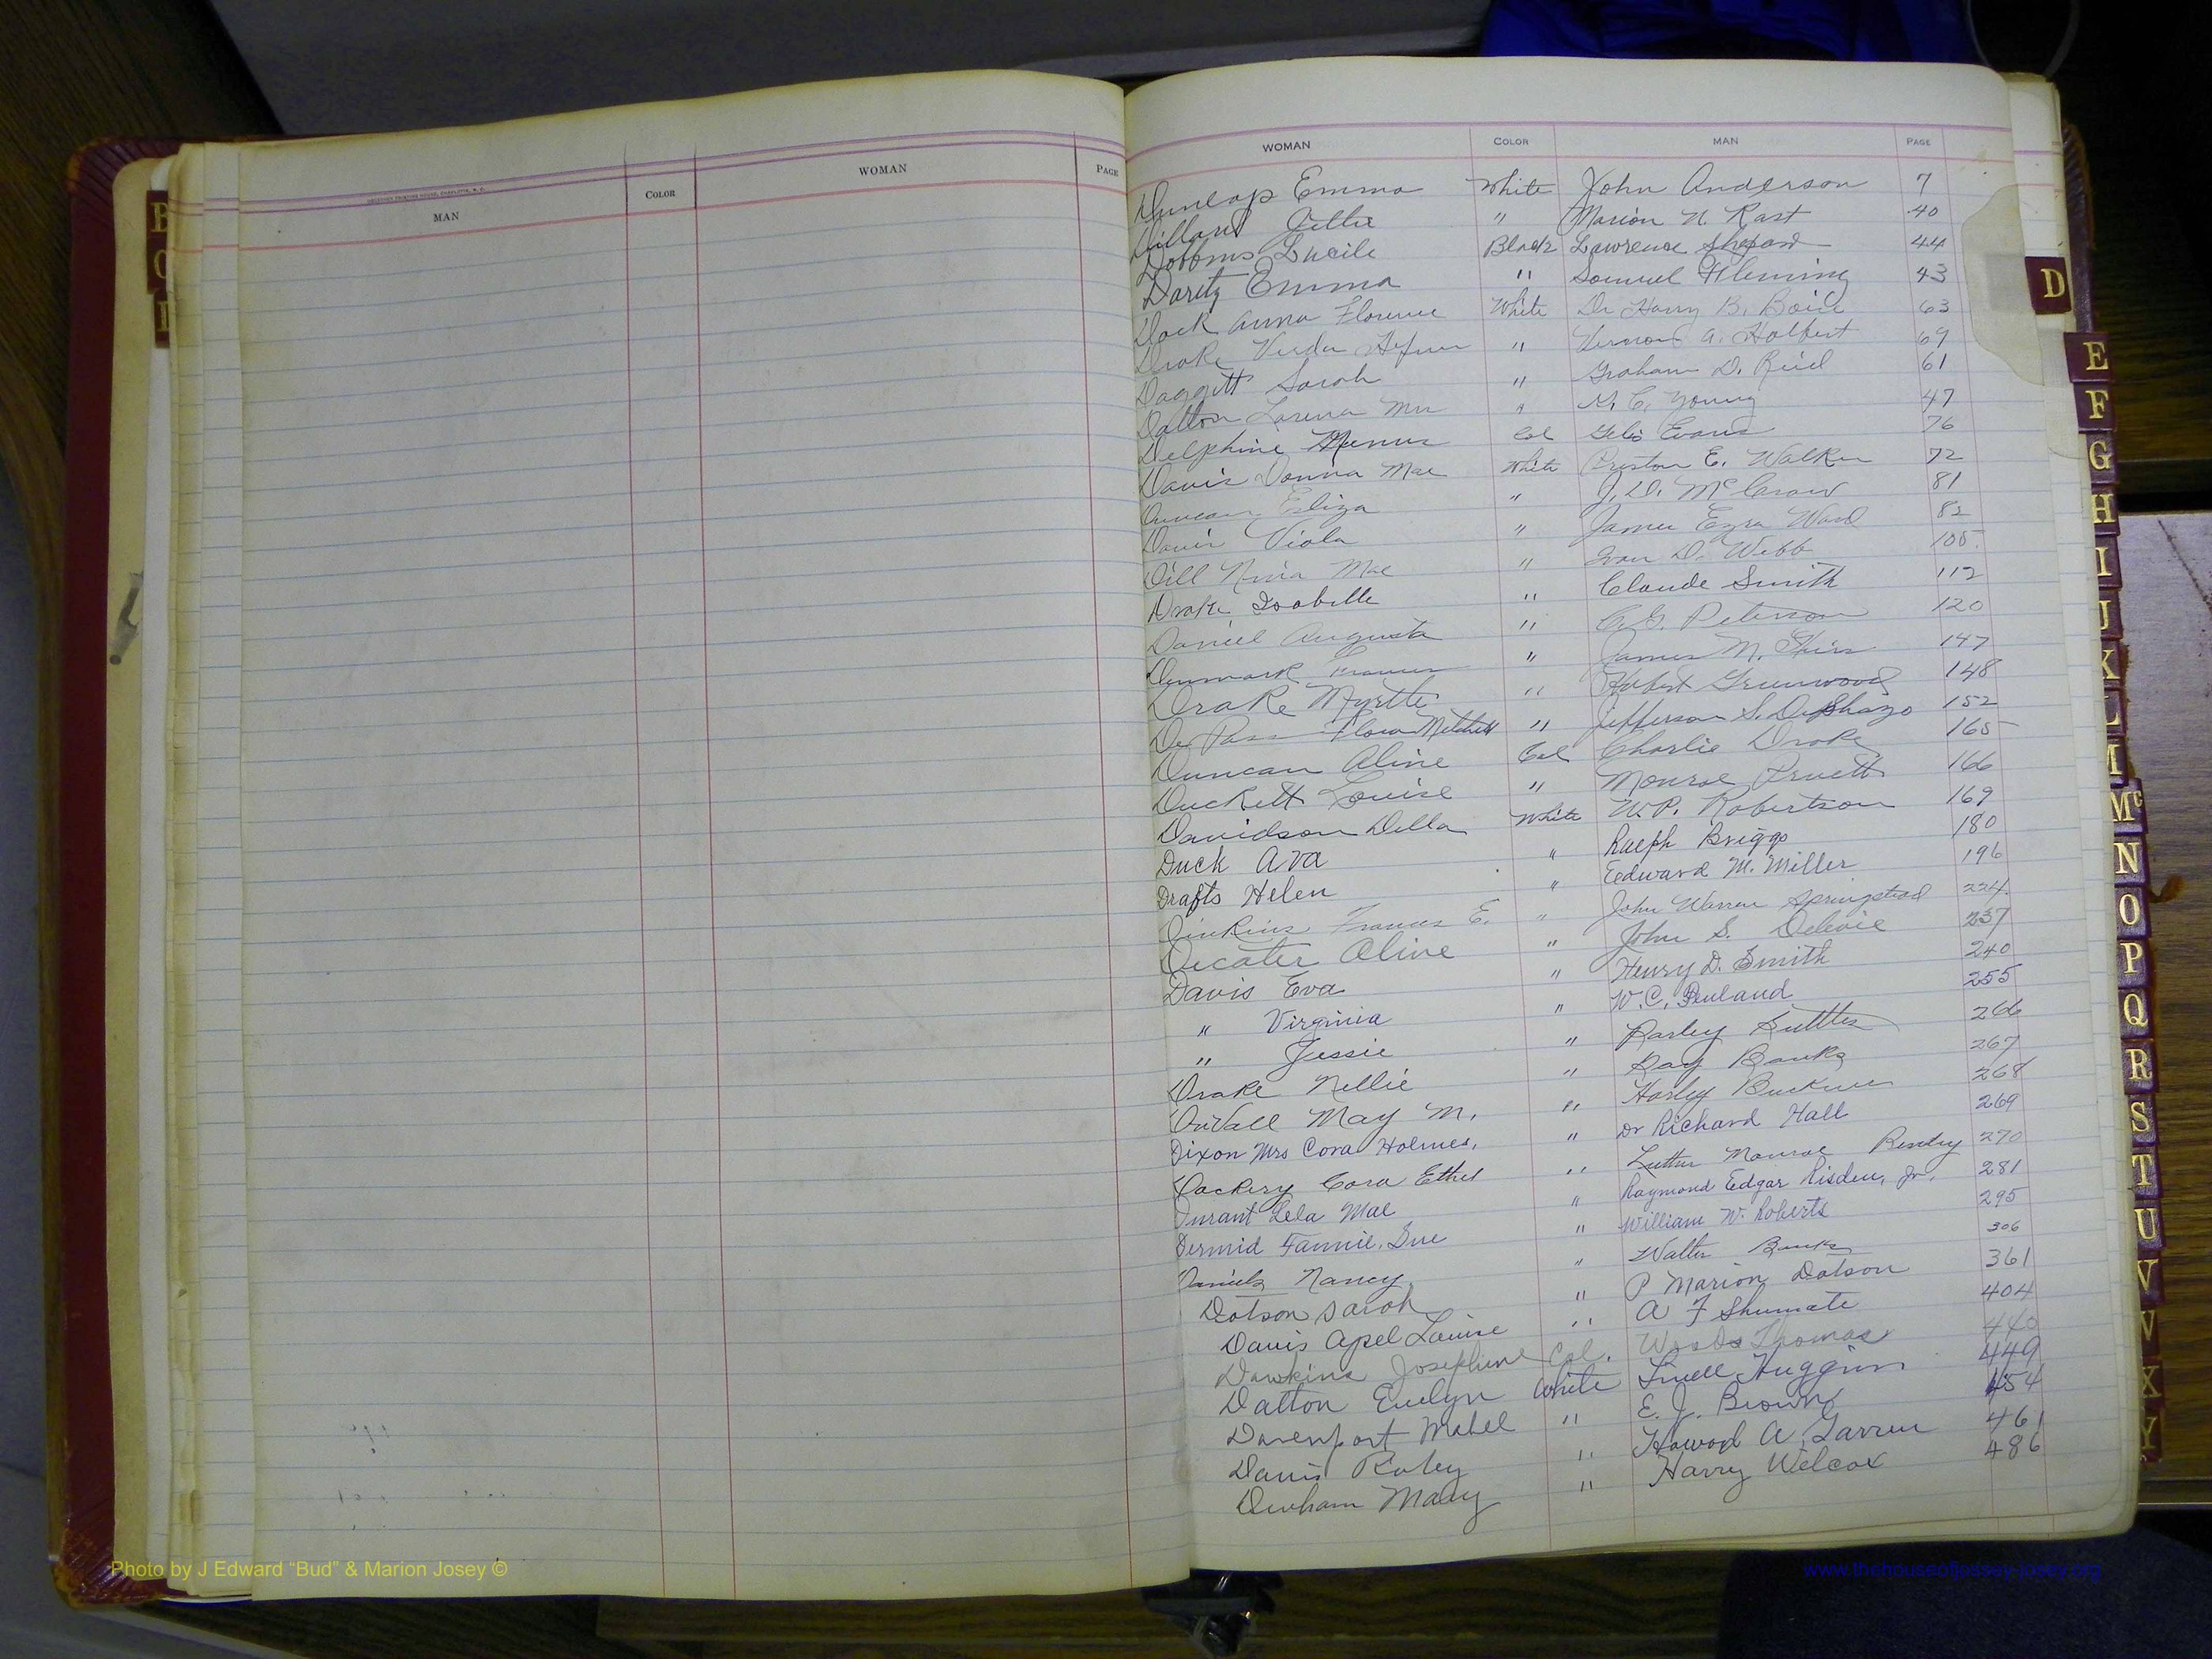 MAN COLOR WOMAN PAGE
WOMAN COLOR MAN PAGE
Dunlap Emma White John Anderson 7
Dillard " Marion N. Rast 40
Dobbins Lucile Black Lawrence Shepard 44
Emma " Samuel Fleming 43
Dock Anna Florence White Dr Harry B. 63
Drake Verda " Vernon A. Holbert 69
Daggett Sarah " Graham D. Reid 61
Dalton Mrs " Young 47
Delphine Col Evans 76
Davis Donna Mae White Preston E. Walker 72
Duncan Eliza " J. D. McCraw 81
Davis Viola " James Ezra Ward 82
Dill Mae " Ivan D. Webb 105
Drake Isabelle " Claude Smith 112
Daniel Augusta " Peterson 120
Denmark Frances " James M. 147
Drake Myrtle " Robert Greenwood 148
De Pass Flora Mitchell " Jefferson S. DeShazo 152
Duncan Aline Col Charlie Drake 165
Duckett Louise " Monroe Pruett 166
Davidson Della White W.P. Robertson 169
Duck Ava " Ralph Briggs 180
Drafts Helen " Eedward M. Miller 196
Dinkins Frances E. " John Warren Springstead 224
Decater Aline " John S. 237
Davis Eva " Henry D. Smith 240
" Virginia " W.C. Penland 255
" Jessie " Parley Suttles 266
Drake Nellie " Banks 267
DuVall May M. " Harley Buckner 268
Dixon Mrs Cora Holmes. " Dr Richard Hall 269
Dockery Cora Ethel " Luther Monroe 270
Durant Lela Mae " Raymond Edgar Risden, Jr. 281
Dermid Fannie Sue " William W. Roberts 295
Daniels Nancy " Walter Banks 306
Dotson Sarah " P Marion Dotson 361
Davis Apel Louise " A F Shumate 404
Dawkins Josephine Col. Woods Thomas 440
Dalton Evelyn White Huggins 449
Davenport Mabel " E. J. Brown 454
Davis Ruby " Howard A. Garren 461
Durham Mary " Harry Welcox 486
B
C
D
D
E
F
G
H
I
J
K
L
M
Mc
N
O
P
Q
R
S
T
U
V
W
X
Y
Photo by J Edward “Bud” & Marion Josey ©
www.thehouseofjossey-josey.org